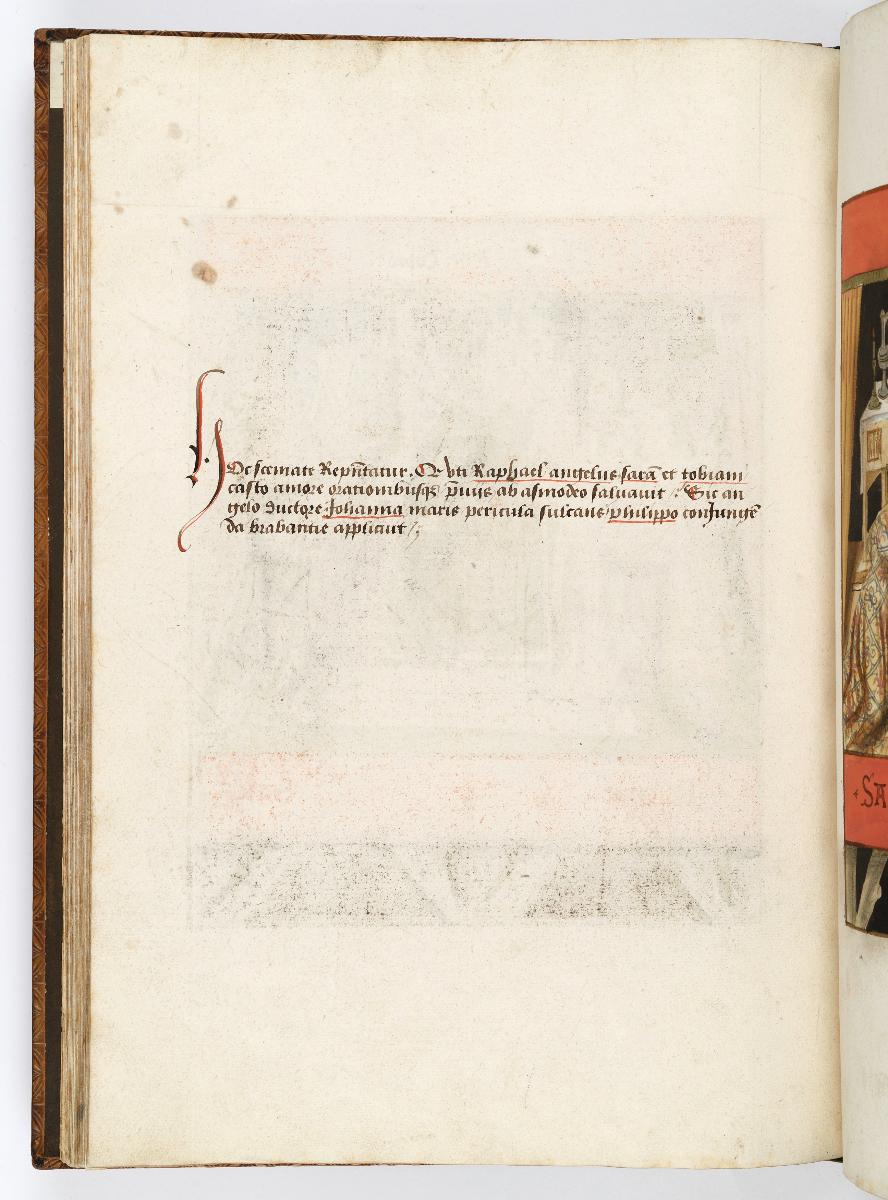 Hoc scemate Repn̄tatur. Qr vti Raphael angelus sarā et tobiam
casto amore orationibusqȝ p̄uijs ab asmodeo saluauit / Sic an
gelo ductore Johanna maris pericula sulcans philippo conJungē
da brabantie applicuit /
SA